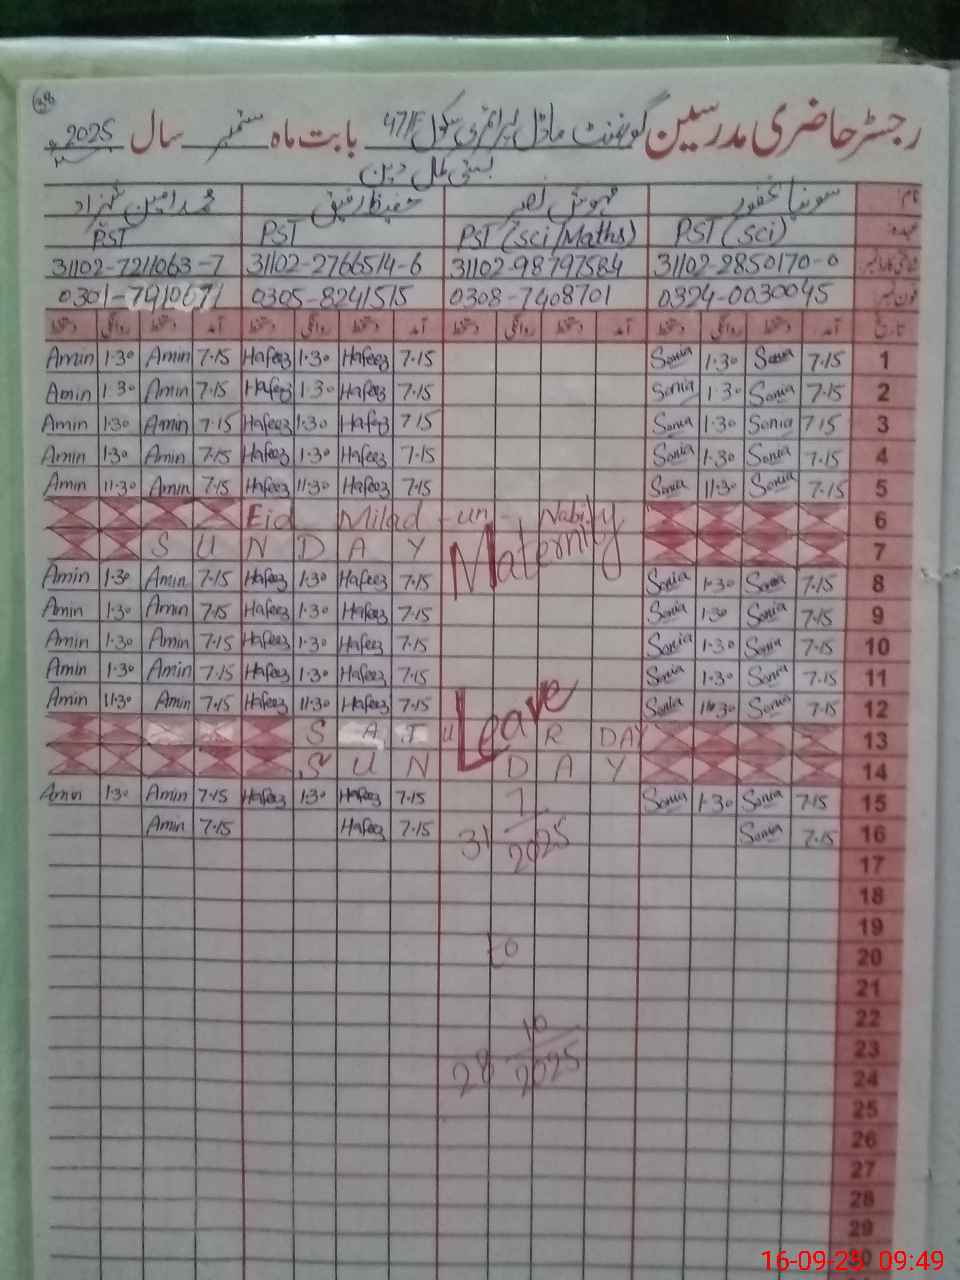 38
رجسٹر حاضری مدرسین گورنمنٹ ماڈل پرائمری سکول 47/F بابت ماہ ستمبر سال 2025ء
بستی کمال دین
نام: سونیا غفور مہوش نصر حفیظ رفیق محمد امین شہزاد
عہدہ: PST (Sci) PST (Sci/Maths) PST PST
31102-2850170-0 31102-98797584 31102-2766514-6 31102-7211063-7
فون نمبر 0324-0030045 0308-7408701 0305-8241515
تاریخ آمد دستخط روانگی دستخط آمد دستخط روانگی دستخط آمد دستخط روانگی دستخط آمد دستخط روانگی دستخط
Amin 1·30 Amin 7·15 Hafeez 1·30 Hafeez 7·15 Sonia 1·30 Sonia 7·15 1
Amin 1·30 Amin 7·15 Hafeez 1·30 Hafeez 7·15 Sonia 1·30 Sonia 7·15 2
Amin 1·30 Amin 7·15 Hafeez 1·30 Hafeez 7·15 Sonia 1·30 Sonia 7·15 3
Amin 1·30 Amin 7·15 Hafeez 1·30 Hafeez 7·15 Sonia 1·30 Sonia 7·15 4
Amin 11·30 Amin 7·15 Hafeez 11·30 Hafeez 7·15 Sonia 11·30 Sonia 7·15 5
Eid Milad-un-Nabi 6
SUNDAY Maternity 7
Amin 1·30 Amin 7·15 Hafeez 1·30 Hafeez 7·15 Sonia 1·30 Sonia 7·15 8
Amin 1·30 Amin 7·15 Hafeez 1·30 Hafeez 7·15 Sonia 1·30 Sonia 7·15 9
Amin 1·30 Amin 7·15 Hafeez 1·30 Hafeez 7·15 Sonia 1·30 Sonia 7·15 10
Amin 1·30 Amin 7·15 Hafeez 1·30 Hafeez 7·15 Sonia 1·30 Sonia 7·15 11
Amin 11·30 Amin 7·15 Hafeez 11·30 Hafeez 7·15 Sonia 11·30 Sonia 7·15 12
SATURDAY Leave 13
SUNDAY 14
Amin 1·30 Amin 7·15 Hafeez 1·30 Hafeez 7·15 7 Sonia 1·30 Sonia 7·15 15
Amin 7·15 Hafeez 7·15 31 2025 Sonia 7·15 16
17
18
19
to 20
21
22
10 23
28 2025 24
25
26
27
28
29
30
16-09-25 09:49